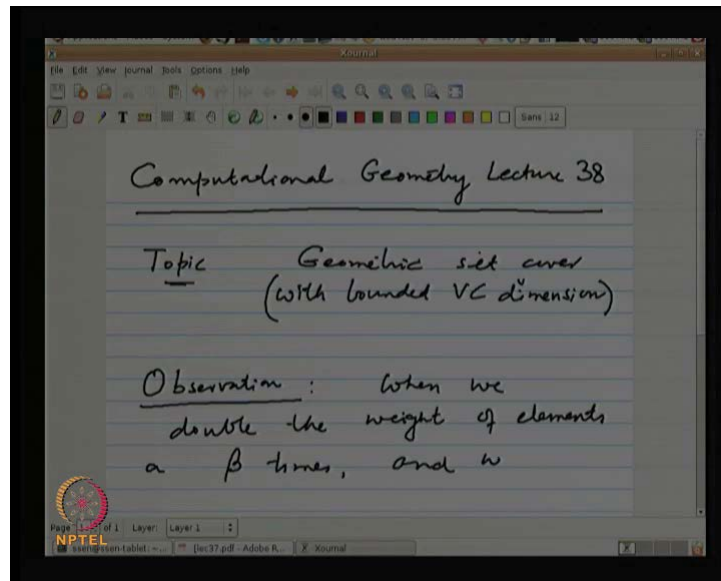 Xournal
File Edit View Journal Tools Options Help
Sans 12
Computational Geometry Lecture 38
Topic Geometric set cover
(with bounded VC dimension)
Observation : When we
double the weight of elements
a β times, and w
Page 1 of 1 Layer: Layer 1
NPTEL
ssen@ssen-tablet: ~... [lec37.pdf - Adobe R... Xournal